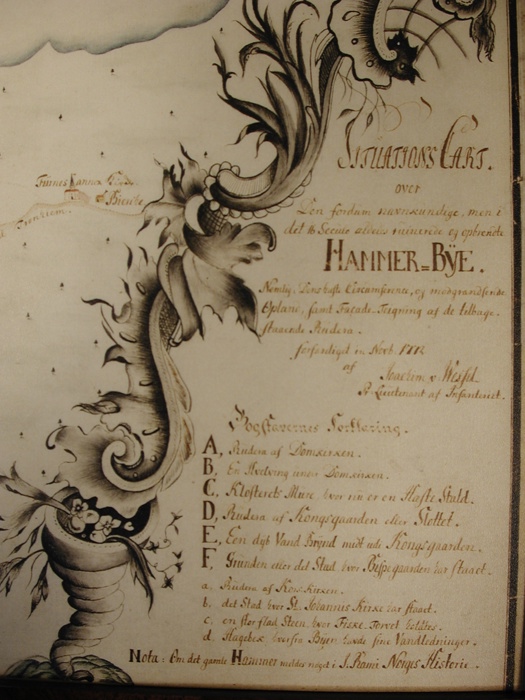 SITUATIONS CART.
over
Den fordum navnkundige, men i
det 16 Seculo aldeles ruinerede og opbrendte
HAMMER=BŸE.
Nemlig, Dens heele Circumference, og indgrændsende
Situations Explane, samt Façade-Tegning af de tilbage-
staaende Rudera.
forferdiget in Novb. 1772
af
Joachim v. Wessel
P. Lieutenant af Infanteriet.
Bogstavernes Forklaring.
A, Rudera af Domkirken.
B, En Hvelving under Domkirken.
C, Klosterets Mure hvor nu er en Heste Stald.
D, Rudera af Kongsgaarden eller Slottet.
E, Een dyb Vand Brønd midt ude Kongsgaarden.
F, Grunden eller det Stad, hvor Bispegaarden har staaet.
a. Rudera af Kors-kirken.
b. det Stad hvor St. Johannis Kirke har staaet.
c. en stor flad Steen, hvor Fiske-Torvet holdtes.
d. hvorfra Byen havde sine Vandledninger.
Nota: Om det gamle Hammer meldes noget i J. Rami Norges Historie.